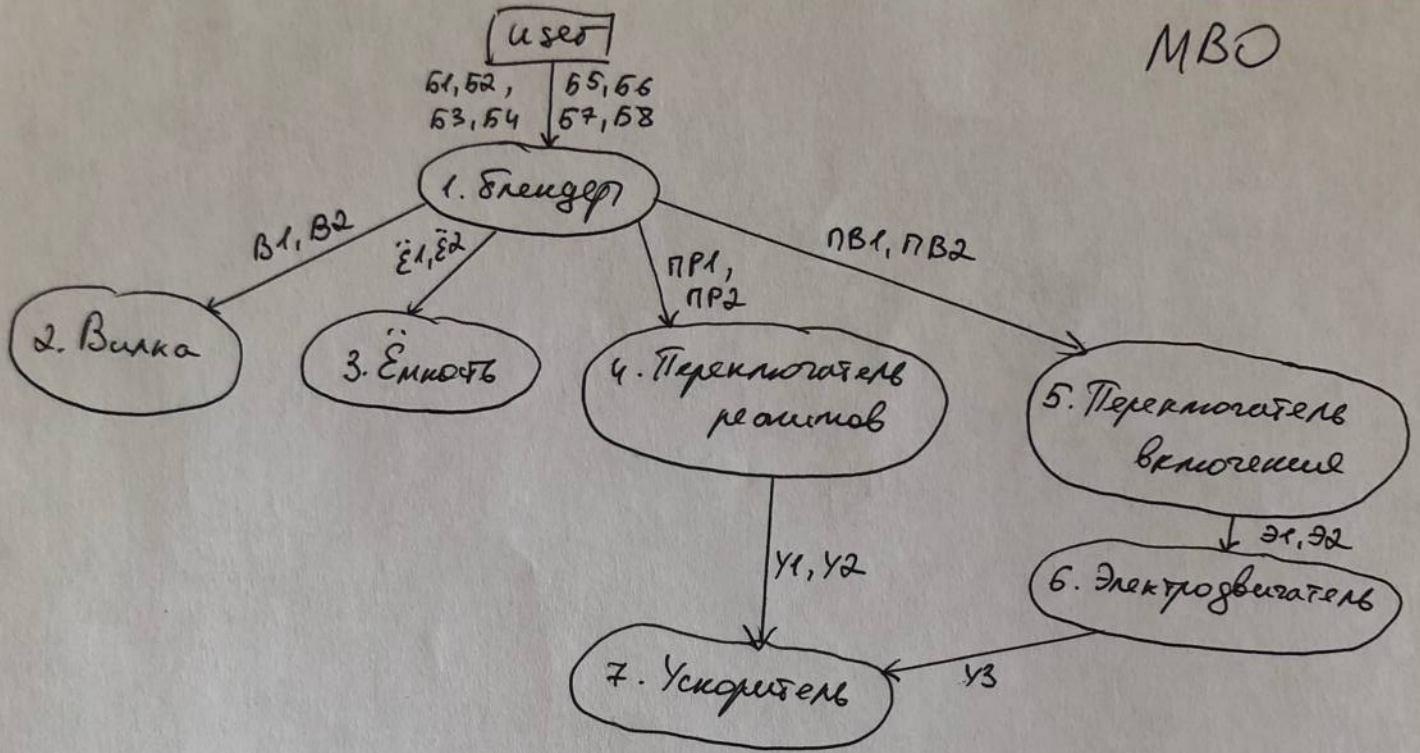 МВО
user
Б1, Б2, Б5, Б6
Б3, Б4 Б7, Б8
1. Блендер
В1, В2
Ё1, Ё2
ПР1,
ПР2
ПВ1, ПВ2
2. Вилка
3. Ёмкость
4. Переключатель
режимов
5. Переключатель
включения
Э1, Э2
У1, У2
6. Электродвигатель
У3
7. Ускоритель